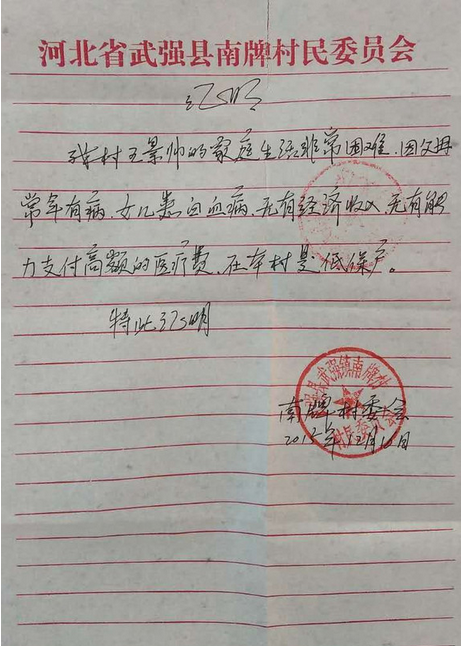 河北省武强县南牌村民委员会
证明
我村王景帅的家庭生活非常困难,因父母
常年有病,女儿患白血病,无有经济收入,无有能
力支付高额的医疗费,在本村是低保户。
特此证明
武强县武强镇南牌村
村民委员会
南牌村委会
2015年12月10日